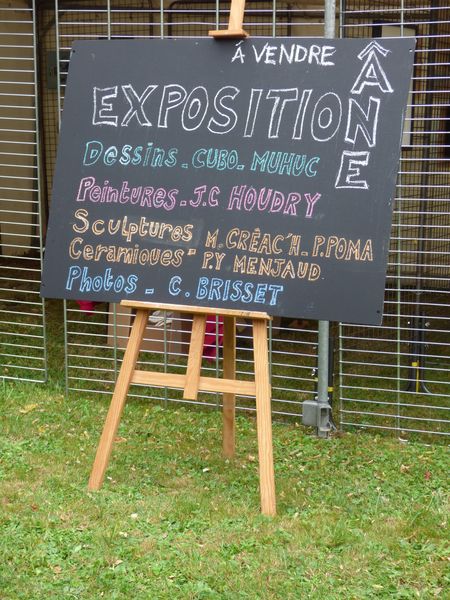 À VENDRE
EXPOSITION
ÂNE
Dessins - CUBO - MUHUC
Peintures - J.C HOUDRY
Sculptures M. CRÉAC'H - P. POMA
Ceramiques " P.Y MENJAUD
Photos - C. BRISSET